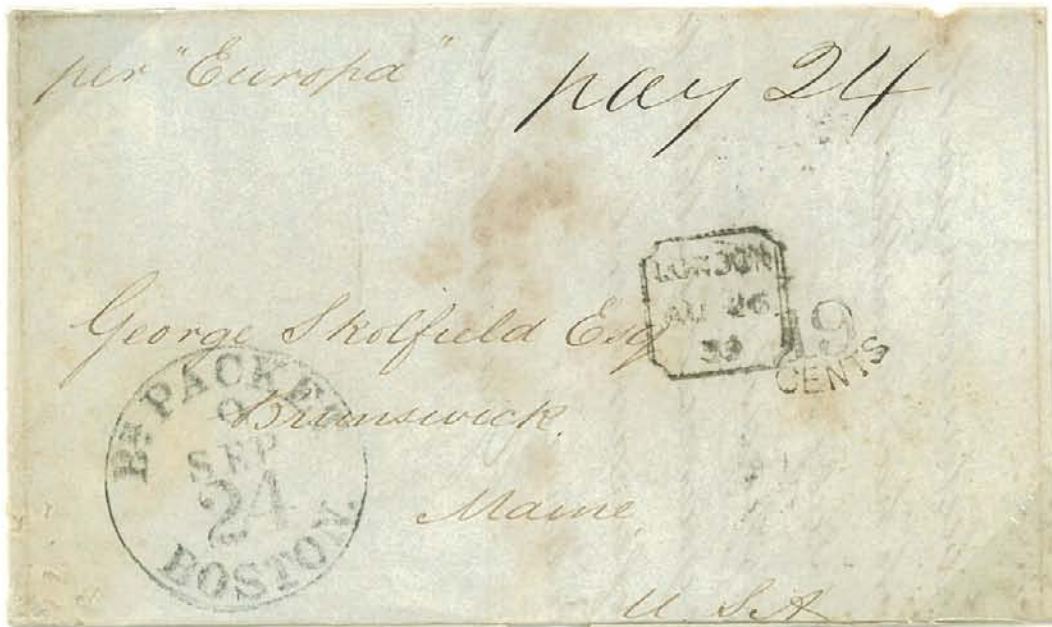 per "Europa"
pay 24
LONDON
AU 26
George Skolfield Esq
19
CENTS
Brunswick.
Maine
U.S.A
BR. PACKET
9
SEP
24
BOSTON.